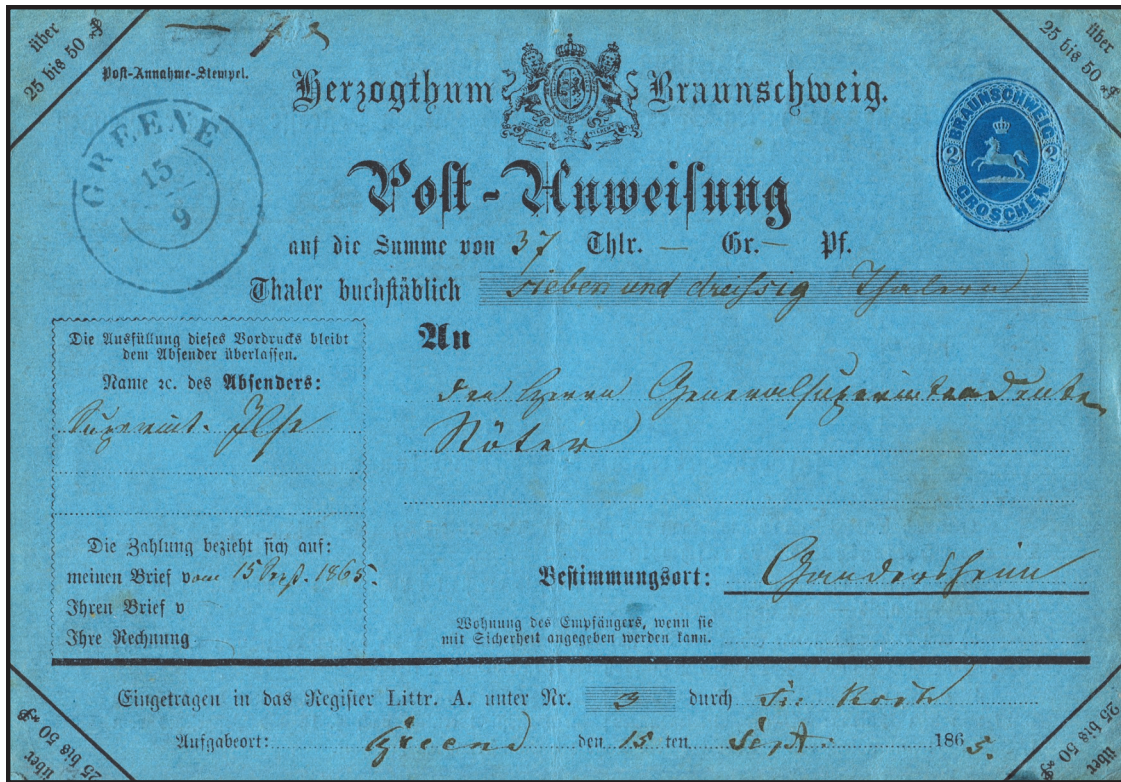 über
25 bis 50 ₰
über
25 bis 50 ₰
Post-Annahme-Stempel.
Herzogthum Braunschweig.
GREENE
15
9
BRAUNSCHWEIG
2 2
GROSCHEN
Post-Anweisung
auf die Summe von 37 Thlr. — Gr. — Pf.
Thaler buchstäblich sieben und dreissig Thalern
Die Ausfüllung dieses Vordrucks bleibt
dem Absender überlassen.
Name ꝛc. des Absenders:
Superint. Ilse
An
den Herrn Generalsuperintendenten
Stöter
Die Zahlung bezieht sich auf:
meinen Brief vom 15 Sept. 1865.
Ihren Brief v
Ihre Rechnung
Bestimmungsort: Gandersheim
Wohnung des Empfängers, wenn sie
mit Sicherheit angegeben werden kann.
Eingetragen in das Register Littr. A. unter Nr. 3 durch
Aufgabeort: Greene den 15 ten Sept. 1865.
über
25 bis 50 ₰
über
25 bis 50 ₰